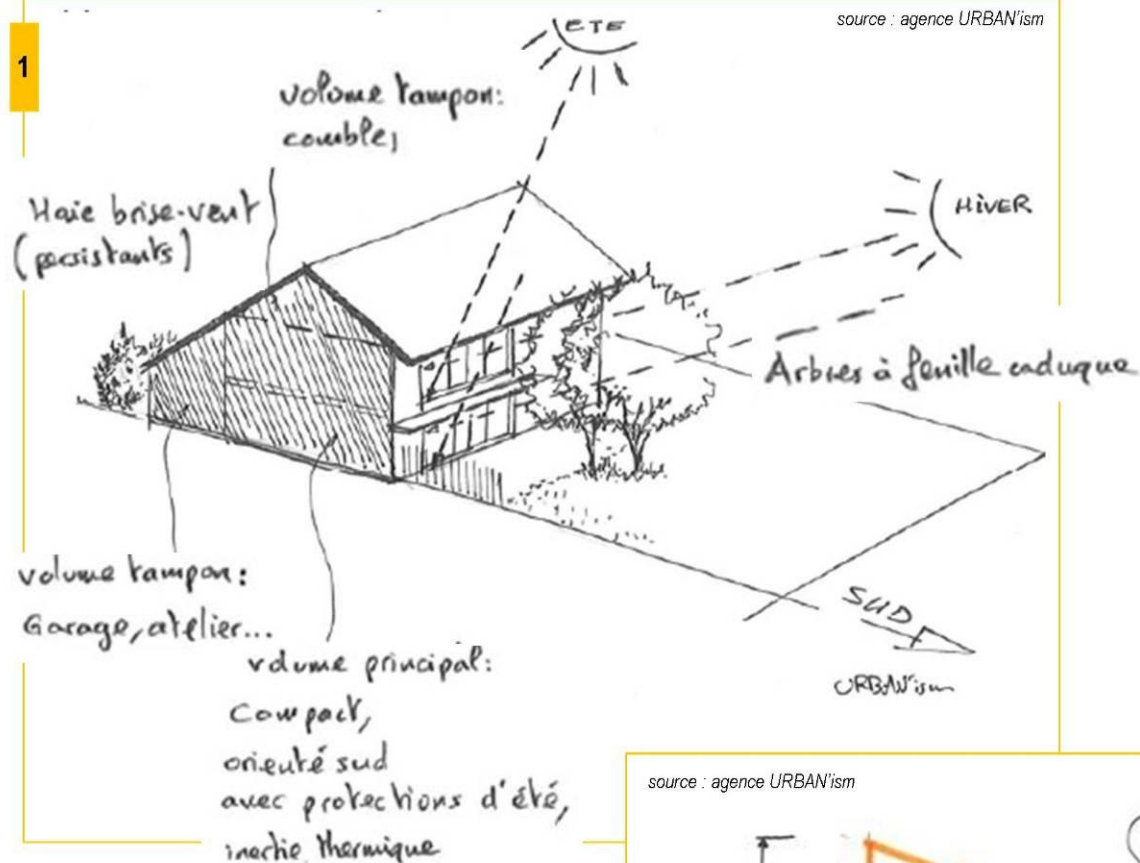 source : agence URBAN'ism
1
ETE
volume tampon:
combles
Haie brise-vent
(persistants)
HIVER
Arbres à feuille caduque
volume tampon:
Garage, atelier...
SUD
URBAN'ism
volume principal:
Compact,
orienté sud
avec protections d'été,
inertie thermique
source : agence URBAN'ism